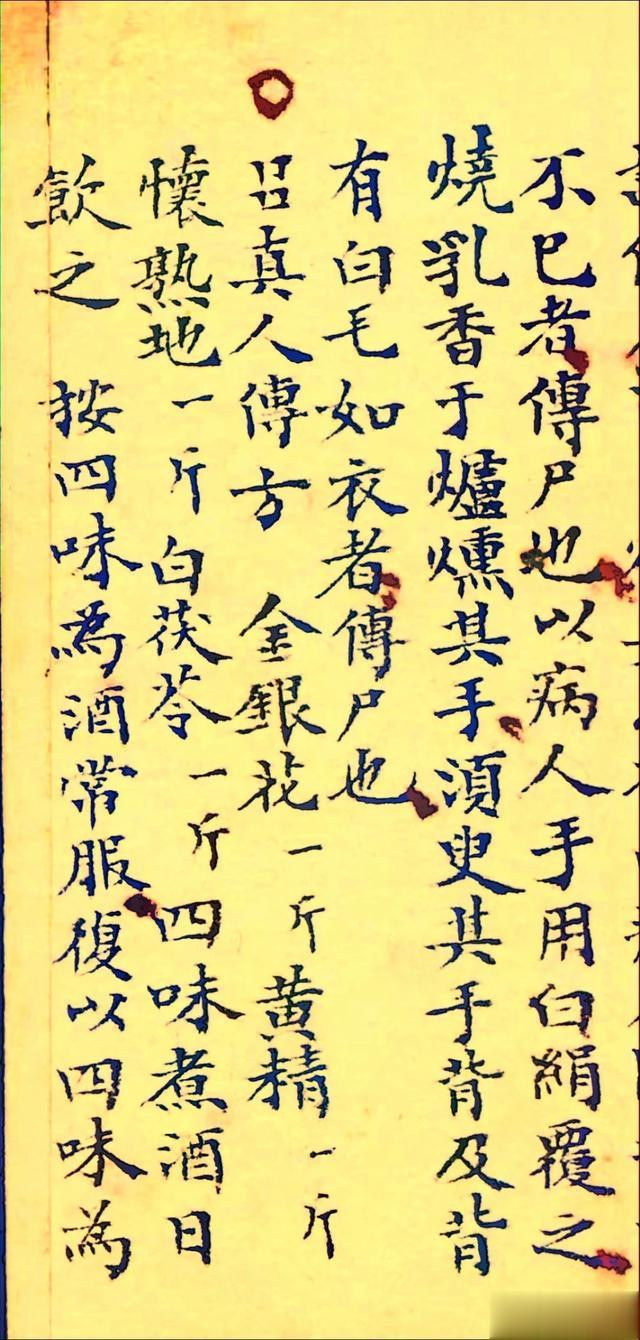 不已者傳尸也以病人手用白絹覆之
燒乳香于爐燻其手須臾其手背及背
有白毛如衣者傳尸也
呂真人傳方 金銀花一斤黃精一斤
懷熟地一斤白茯苓一斤四味煮酒日
飲之 按四味為酒常服復以四味為